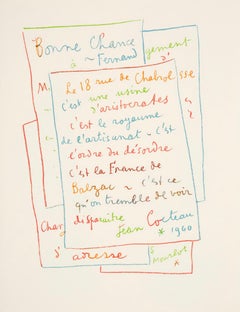 Bonne Chance
à ~ Fernand
gement
Le 18 rue de Chabrol
sse
c'est une usine
d'aristocrates
c'est le royaume
de l'artisanat ~ c'est
l'ordre du désordre
c'est la France de
Balzac ~ c'est ce
qu'on tremble de voir
disparaitre
Jean Cocteau
* 1960
Char
d'adresse
s Mourlot
*